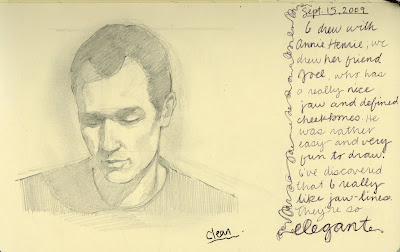 Sept. 15, 2009
I drew with
Annie Henrie, we
drew her friend
Joel, who has
a really nice
jaw and defined
cheekbones. He
was rather
easy and very
fun to draw!
I've discovered
that I really
like jaw-lines.
They're so
elegant.
Clean